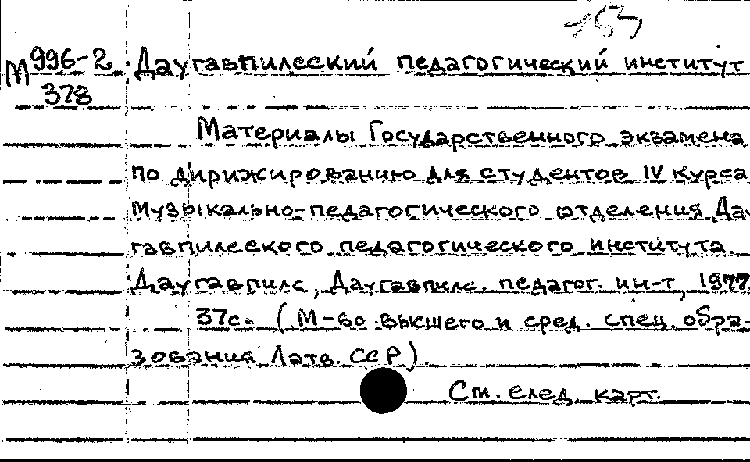 153
М 996-2 Даугавпилсский педагогический институт
378
Материалы Государственного экзамена
по дирижированию для студентов IV курса
Музыкально-педагогического отделения Дау
гавпилсского педагогического института.
Даугавпилс, Даугавпилс. педагог. ин-т, 1977
37с. (М-во высшего и сред. спец. обра-
зования Латв. ССР).
См. след. карт.